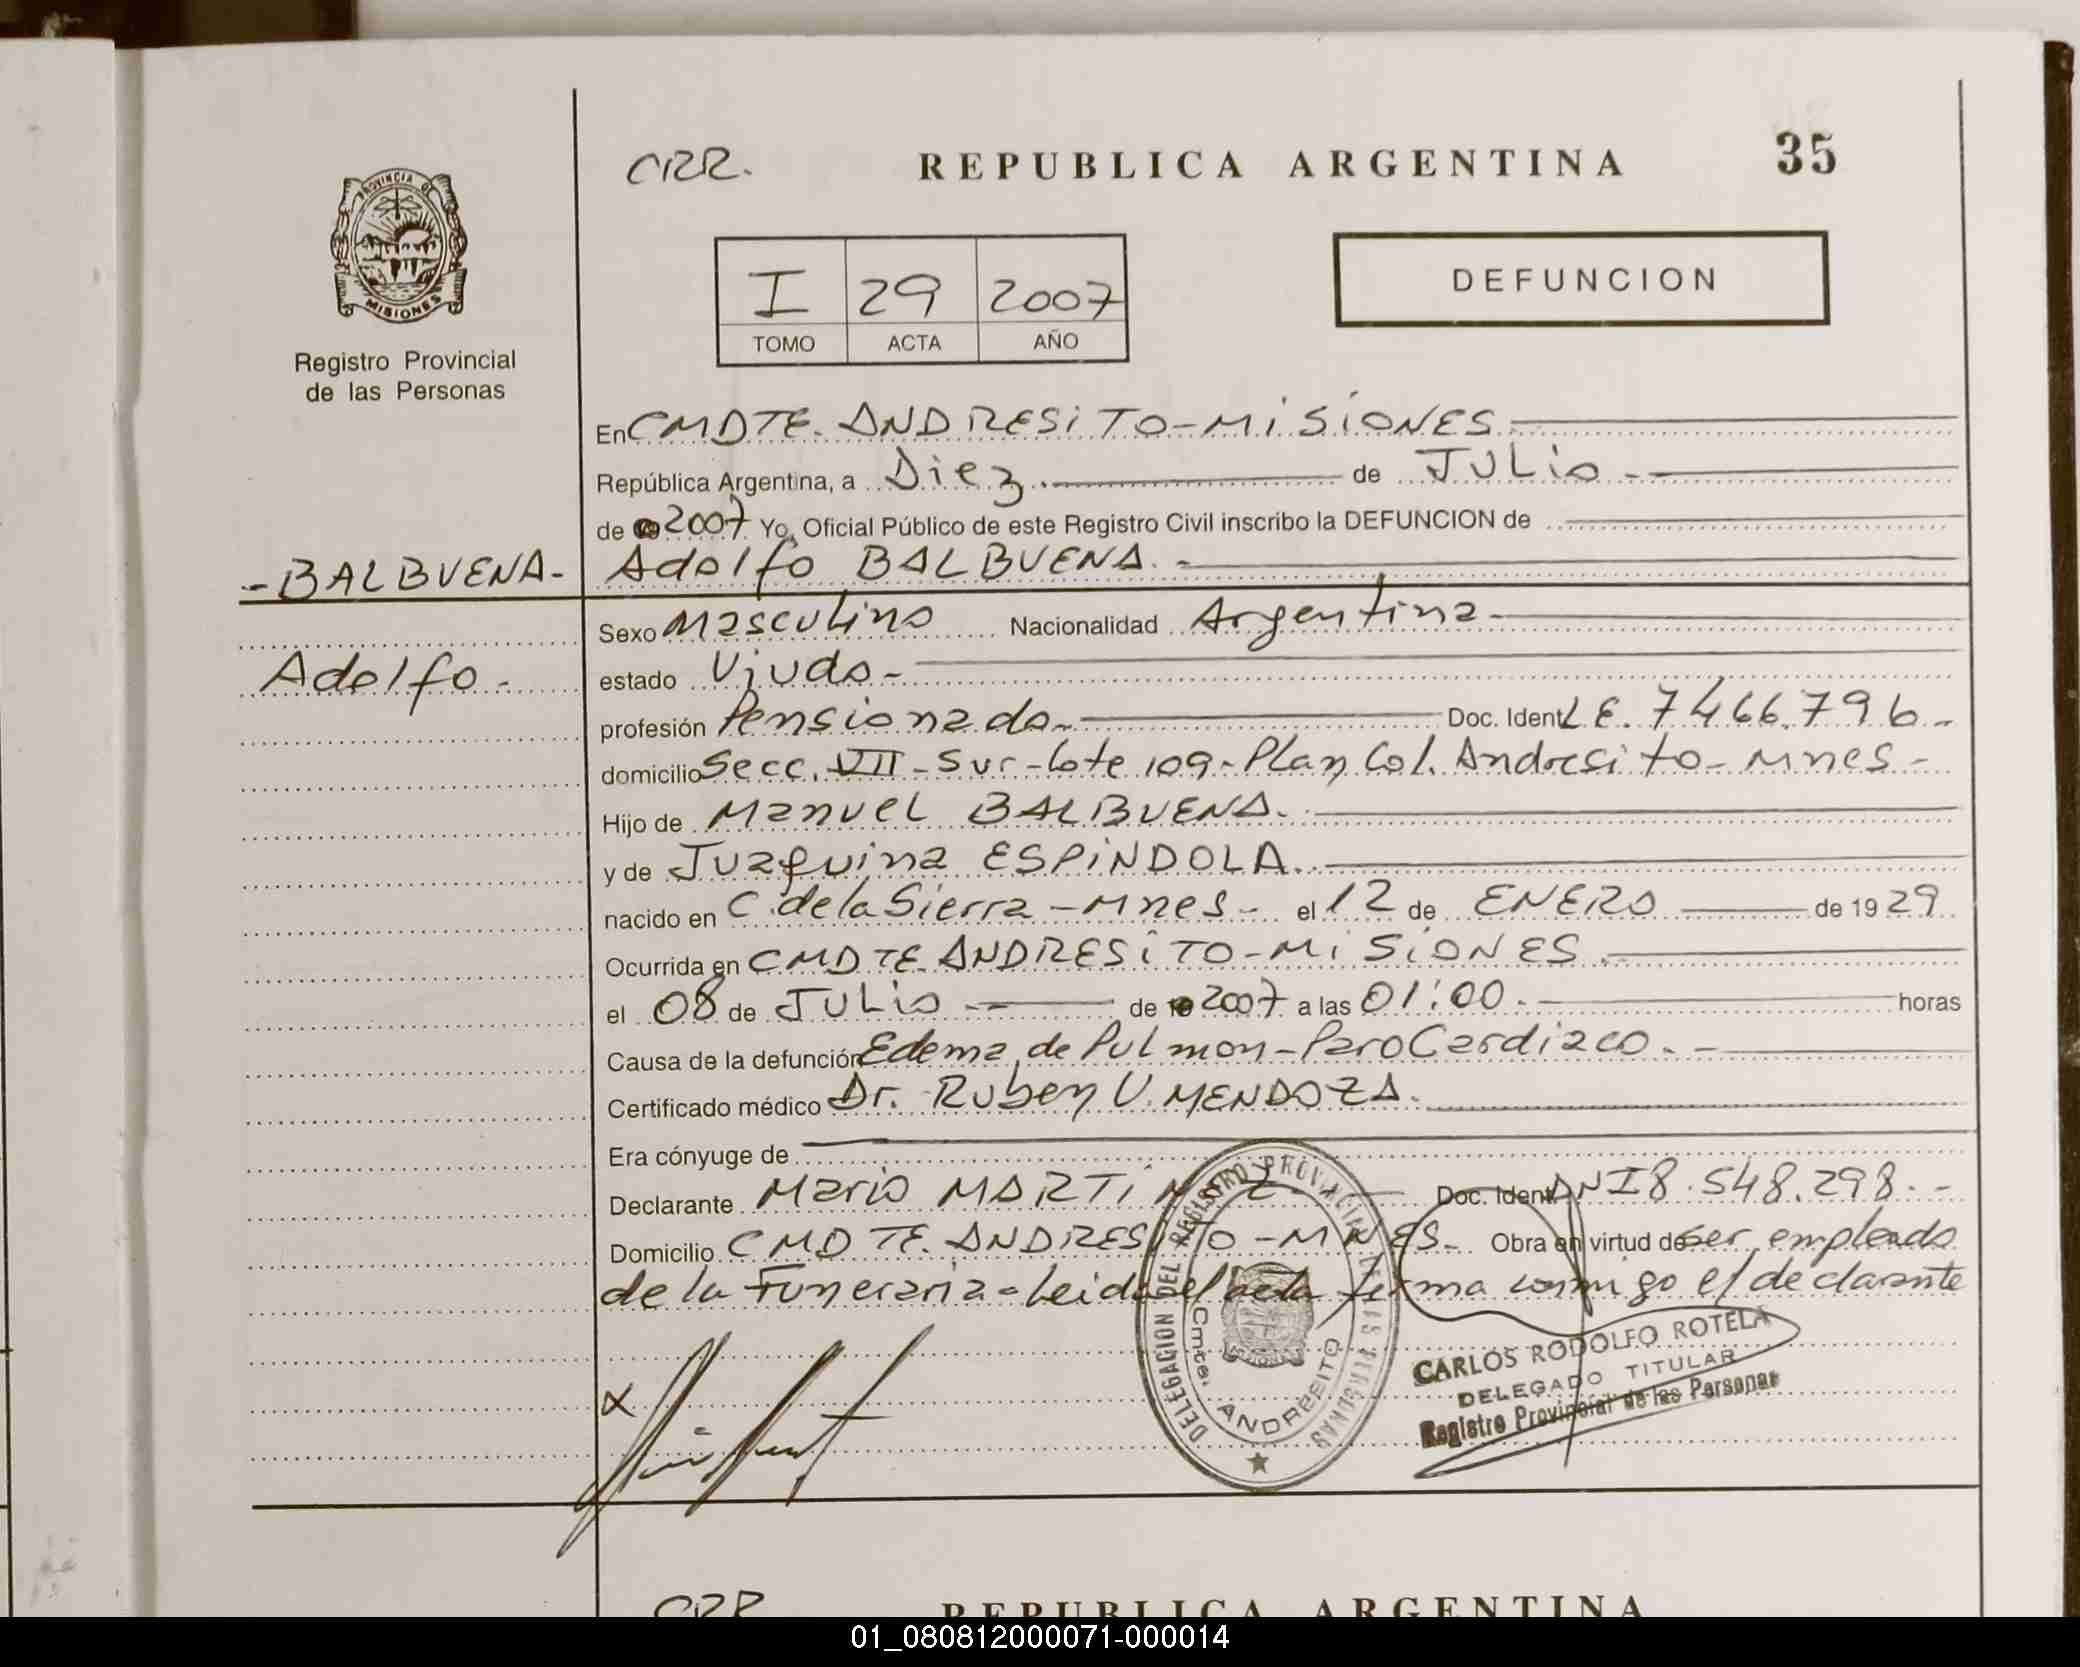 CRR. REPUBLICA ARGENTINA 35
PROVINCIA DE
MISIONES
Registro Provincial
de las Personas
I 29 2007
TOMO ACTA AÑO
DEFUNCION
En CMDTE. ANDRESiTO-MiSiONES
República Argentina, a Diez. de JULio.-
de 2007 Yo, Oficial Público de este Registro Civil inscribo la DEFUNCION de
-BALBUENA- Adolfo BALBUENA.-
Sexo Masculino Nacionalidad Argentina-
Adolfo-
estado Viudo-
profesión Pensionado- Doc. Ident LE. 7466.796-
domicilio Secc. VII-Sur-lote 109-Plan Col. Andresito-Mnes-
Hijo de Manuel BALBUENA.
y de Juaquina ESPiNDOLA.
nacido en C. de la Sierra-Mnes- el 12 de ENERO de 1929
Ocurrida en CMDTE ANDRESiTO-MiSiONES.
el 08 de JULio-- de 2007 a las 01:00.- horas
Causa de la defunción Edema de Pulmon-Paro Cardiaco.-
Certificado médico Dr. Ruben V. MENDOZA.
Era cónyuge de
Declarante Mario MARTiNEZ-- Doc. Ident DNI 8.548.298.-
Domicilio CMDTE. ANDRESiTO-MNES- Obra en virtud de ser empleado
de la Funeraria-Leida el acta firma conmigo el declarante
X
DELEGACION DEL REGISTRO PROVINCIAL DE LAS PERSONAS
Cmte. ANDRESITO
CARLOS RODOLFO ROTELA
DELEGADO TITULAR
Registro Provincial de las Personas
CRR REPUBLICA ARGENTINA
01_080812000071-000014